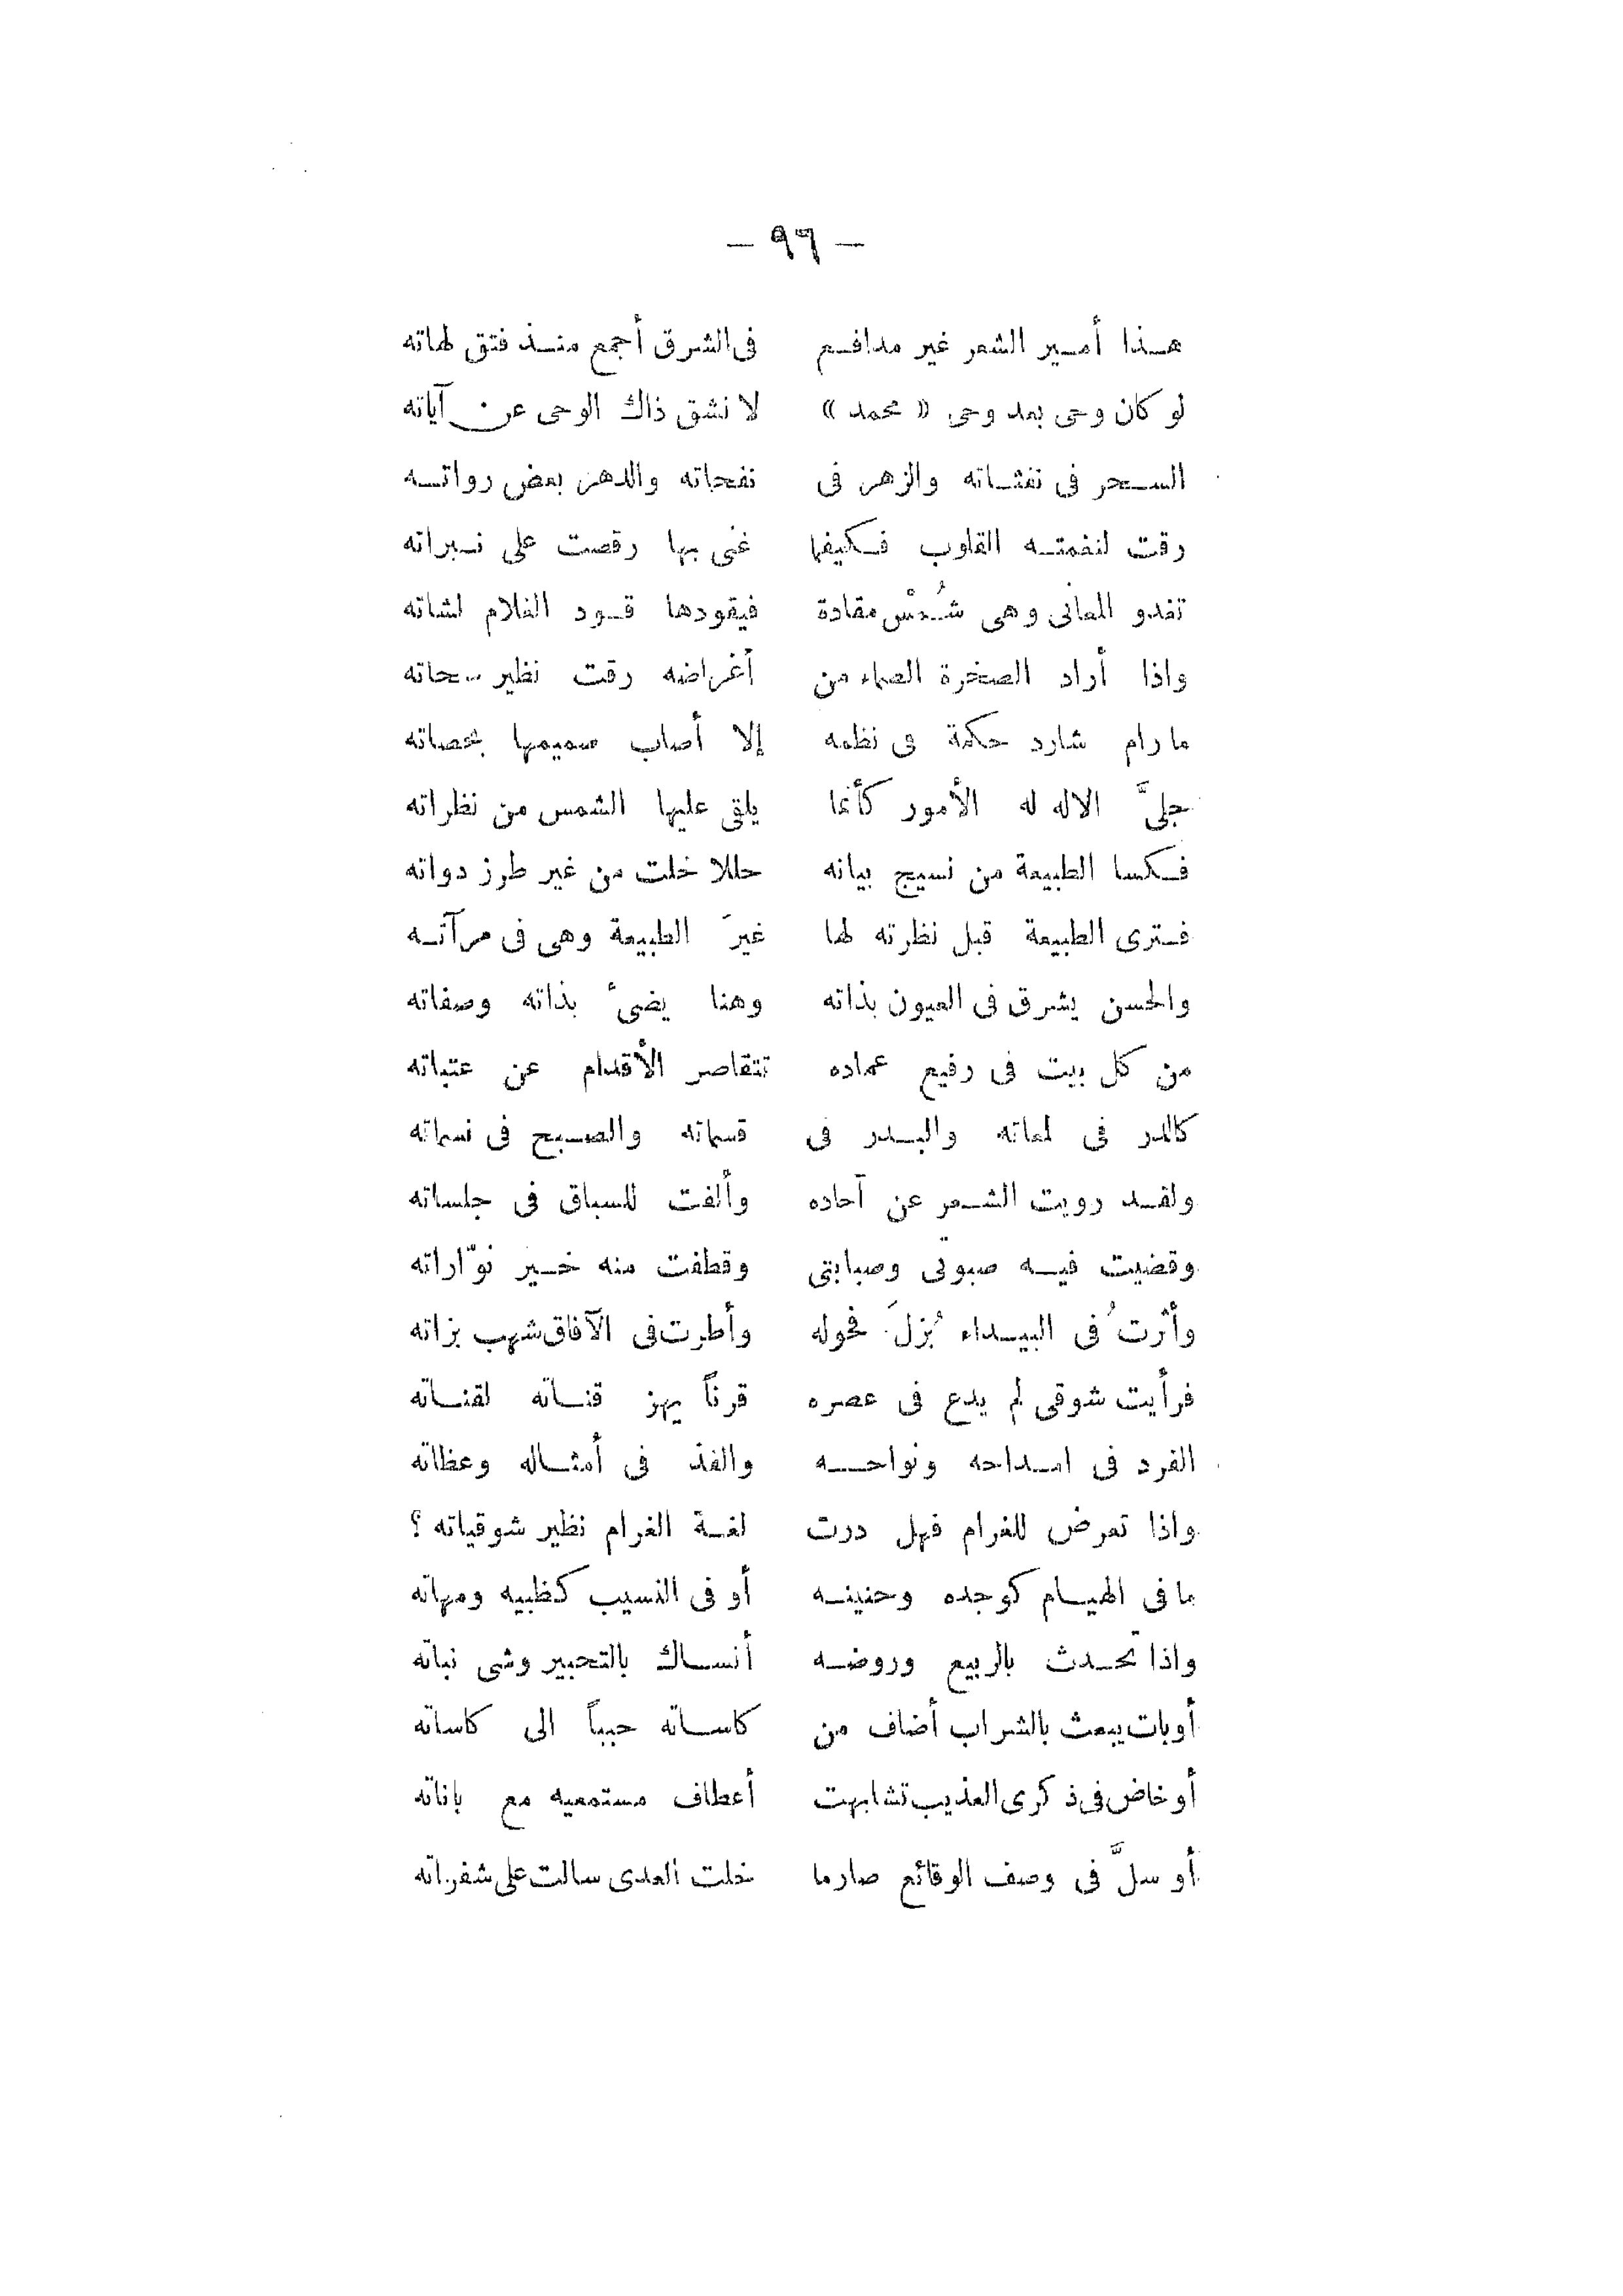 — ٩٦ —
هذا أمير الشعر غير مدافع فى الشرق أجمع منذ فتق لهاته
لو كان وحى بعد وحى « محمد » لانشق ذاك الوحى عن آياته
السحر فى نفثاته والزهر فى نفحاته والدهر بعض رواته
رقت لنغمته القلوب فكيفما غنى بها رقصت على نبراته
تغدو المعانى وهى شُمْس مقادة فيقودها قود الغلام لشاته
واذا أراد الصخرة الصماء من أغراضه رقت نظير
ما رام شارد حكمة فى نظمه إلا أصاب صميمها بحصاته
جلىَّ الاله له الأمور كأنما يلقى عليها الشمس من نظراته
فكسا الطبيعة من نسيج بيانه حللا خلت من غير طرز دواته
فترى الطبيعة قبل نظرته لها غيرَ الطبيعة وهى فى مرآته
والحسن يشرق فى العيون بذاته وهنا يضىء بذاته وصفاته
من كل بيت فى رفيع عماده تتقاصر الأقدام عن عتباته
كالدر فى لمعاته والبدر فى قسماته والصبح فى نسماته
ولقد رويت الشعر عن آحاده وألفت للسباق فى جلساته
وقضيت فيه صبوتى وصبابتى وقطفت منه خير نوّاراته
وأثرتُ فى البيداء بُزلَ فحوله وأطرت فى الآفاق شهب بزاته
فرأيت شوقى لم يدع فى عصره قرناً يهز قناته لقناته
الفرد فى امداحه ونواحه والفذ فى أمثاله وعظاته
واذا تعرض للغرام فهل درت لغة الغرام نظير شوقياته ؟
ما فى الهيام كوجده وحنينه أو فى النسيب كظبيه ومهاته
واذا تحدث بالربيع وروضه أنساك بالتحبير وشى نباته
أو بات يبعث بالشراب أضاف من كاساته حبباً الى كاساته
أو خاض فى ذكرى العذيب تشابهت أعطاف مستمعيه مع باناته
أو سلَّ فى وصف الوقائع صارما خلت العدى سالت على شفراته